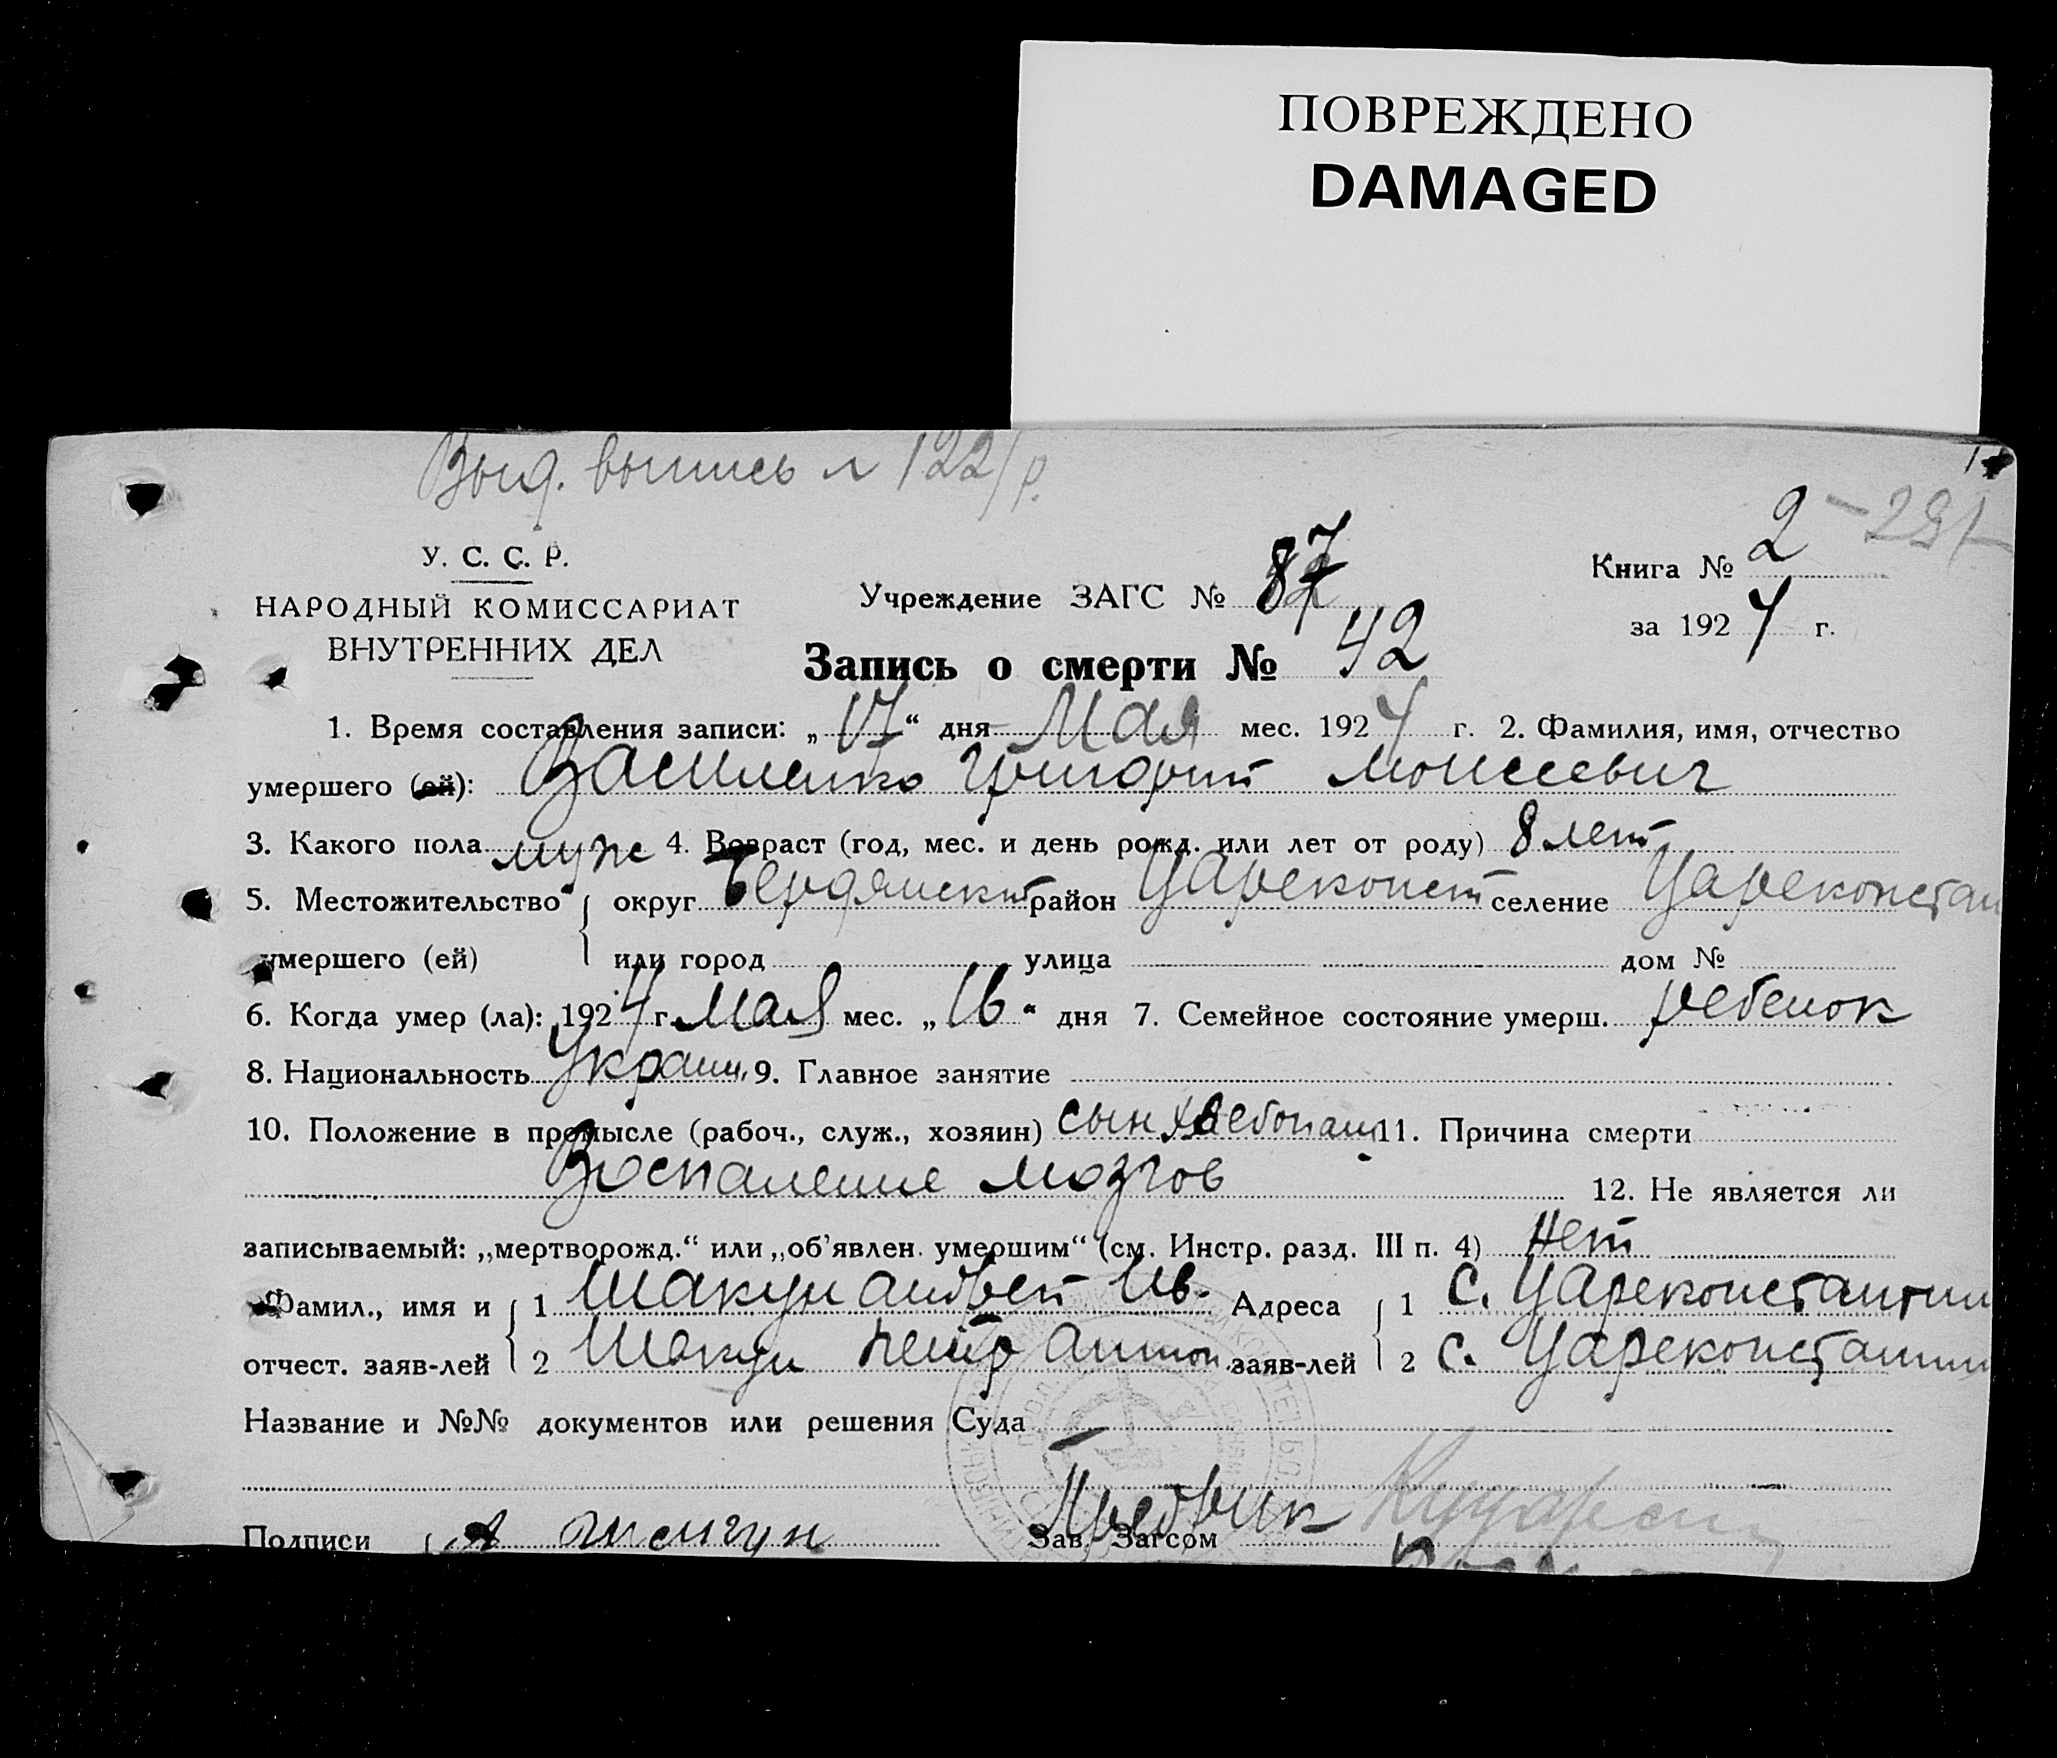 ПОВРЕЖДЕНО
DAMAGED
Выд. выпись л 122/р.
2 – 291
У. С. С. Р.
НАРОДНЫЙ КОМИССАРИАТ
ВНУТРЕННИХ ДЕЛ
Учреждение ЗАГС № 87
Книга № 2
за 1924 г.
Запись о смерти № 42
1. Время составления записи: „17“ дня Мая мес. 1924 г. 2. Фамилия, имя, отчество
умершего (ей): Василенко Григорий Моисеевич
3. Какого пола муж 4. Возраст (год, мес. и день рожд. или лет от роду) 8 лет
5. Местожительство округ Бердянский район Цареконст селение Цареконстан
умершего (ей) или город улица дом №
6. Когда умер (ла): 1924 г. Мая мес. „16“ дня 7. Семейное состояние умерш. ребенок
8. Национальность Украин. 9. Главное занятие
10. Положение в промысле (рабоч., служ., хозяин) сын хлебопаш 11. Причина смерти
Воспаление мозгов 12. Не является ли
записываемый: „мертворожд.“ или „об'явлен. умершим“ (см. Инстр. разд. III п. 4) Нет
Фамил., имя и 1 Шакун Ив. Адреса 1 с. Цареконстантин
отчест. заяв-лей 2 Шакун Петр Антон. заяв-лей 2 с. Цареконстантин
Название и №№ документов или решения Суда —
Подписи А Зав. Загсом